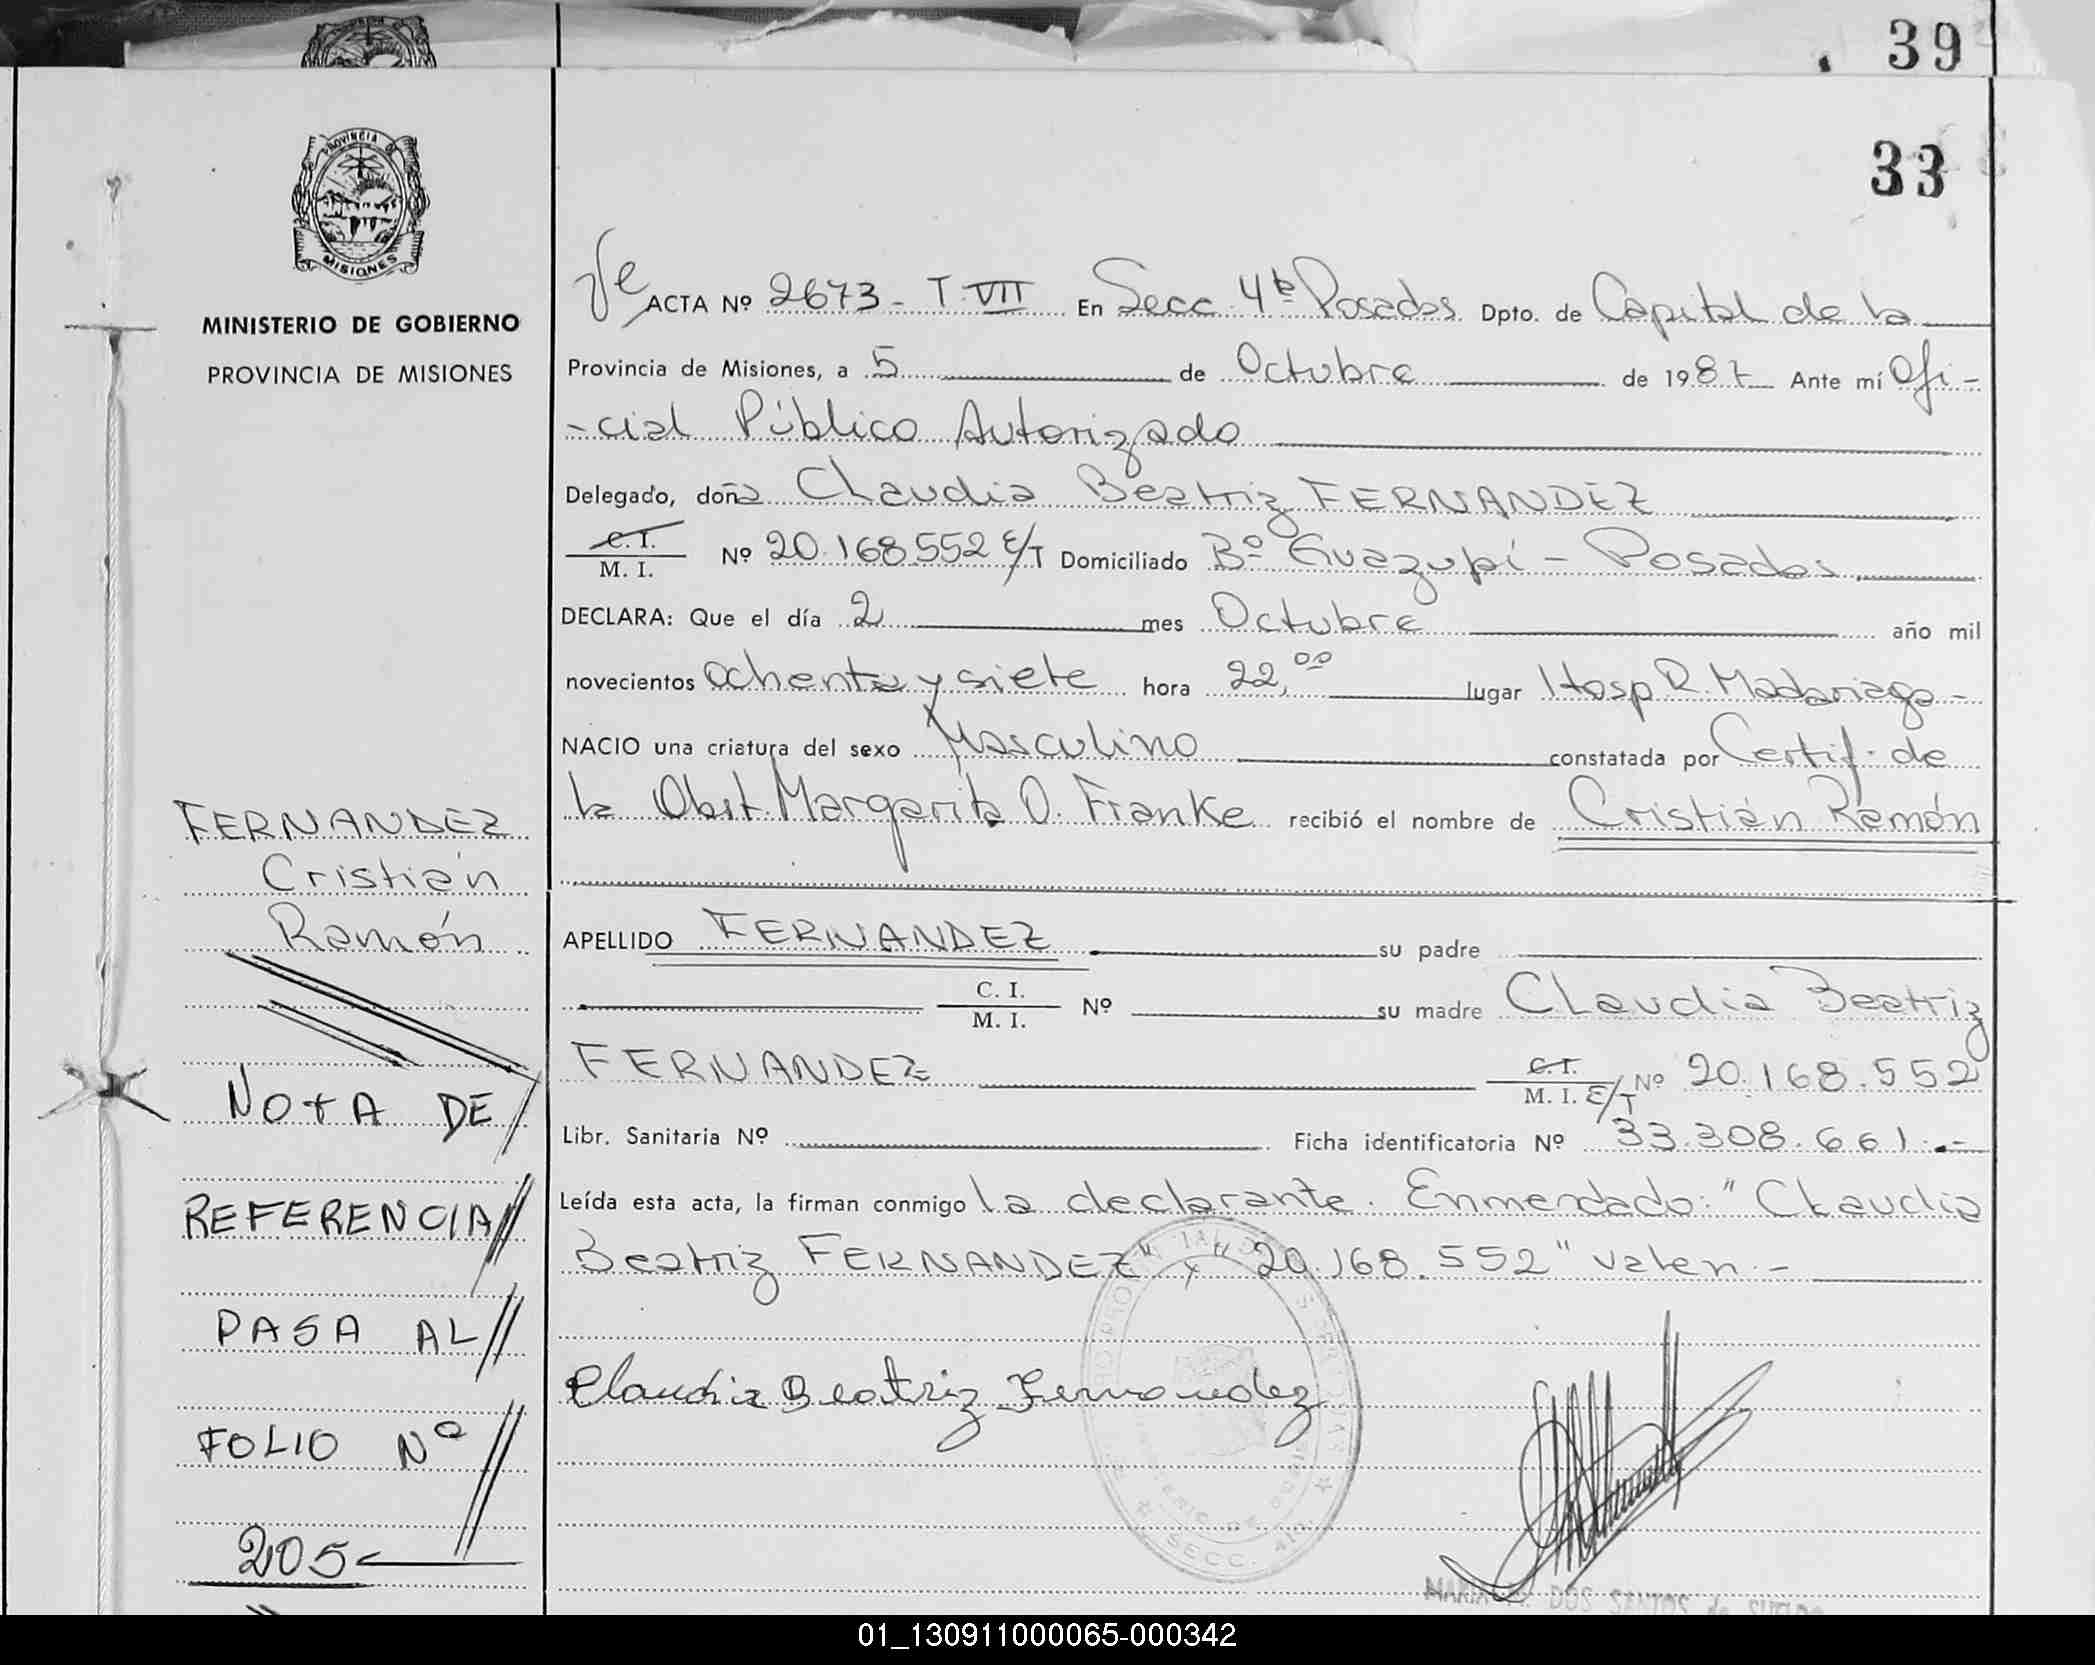 39
33
PROVINCIA DE
MISIONES
MINISTERIO DE GOBIERNO
PROVINCIA DE MISIONES
ACTA Nº 2673 - T. VII En Secc. 4ta Posadas Dpto. de Capital de la
Provincia de Misiones, a 5 de Octubre de 1987 Ante mí Ofi-
-cial Público Autorizado
Delegado, doña Claudia Beatriz FERNANDEZ
C. I.
M. I. Nº 20.168.552 E/T Domiciliado Bº Guazupí - Posadas
DECLARA: Que el día 2 mes Octubre año mil
novecientos ochenta y siete hora 22,00 lugar Hosp R. Madariaga -
NACIO una criatura del sexo Masculino constatada por Certif. de
la Obst. Margarita O. Franke recibió el nombre de Cristián Ramón
APELLIDO FERNANDEZ su padre
C. I.
M. I. Nº su madre Claudia Beatriz
FERNANDEZ C. I.
M. I. E/T Nº 20.168.552
Libr. Sanitaria Nº Ficha identificatoria Nº 33.308.661.-
Leída esta acta, la firman conmigo la declarante. Enmendado: "Claudia
Beatriz FERNANDEZ" y "20.168.552" valen -
Claudia Beatriz Fernandez
SECC. 4ta.
DOS SANTOS de
FERNANDEZ
Cristián
Ramón
NOTA DE
REFERENCIA
PASA AL
FOLIO Nº
205
01_130911000065-000342